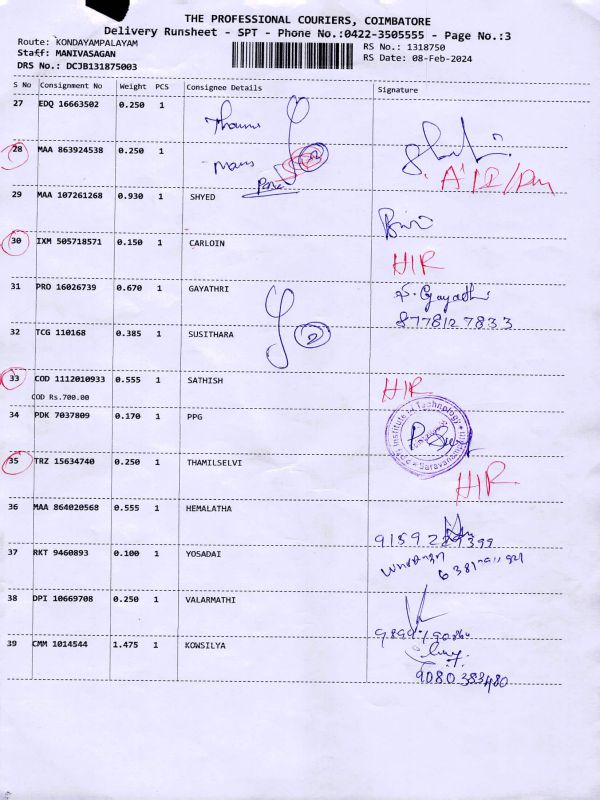 THE PROFESSIONAL COURIERS, COIMBATORE
Delivery Runsheet - SPT - Phone No.:0422-3505555 - Page No.:3
Route: KONDAYAMPALAYAM
RS No.: 1318750
Staff: MANIVASAGAN
RS Date: 08-Feb-2024
DRS No.: DCJB131875003
S No Consignment No Weight PCS Consignee Details Signature
27 EDQ 16663502 0.250 1
28 MAA 863924538 0.250 1
29 MAA 107261268 0.930 1 SHYED
30 IXM 505718571 0.150 1 CARLOIN
HIR
31 PRO 16026739 0.670 1 GAYATHRI
Gayathri
8778127833
32 TCG 110168 0.385 1 SUSITHARA
2
33 COD 1112010933 0.555 1 SATHISH HIR
COD Rs.700.00
34 PDK 7037809 0.170 1 PPG
Institute of Technology
35 TRZ 15634740 0.250 1 THAMILSELVI
HIR
36 MAA 864020568 0.555 1 HEMALATHA
37 RKT 9460893 0.100 1 YOSADAI
38 DPI 10669708 0.250 1 VALARMATHI
39 CMM 1014544 1.475 1 KOWSILYA
9080383480